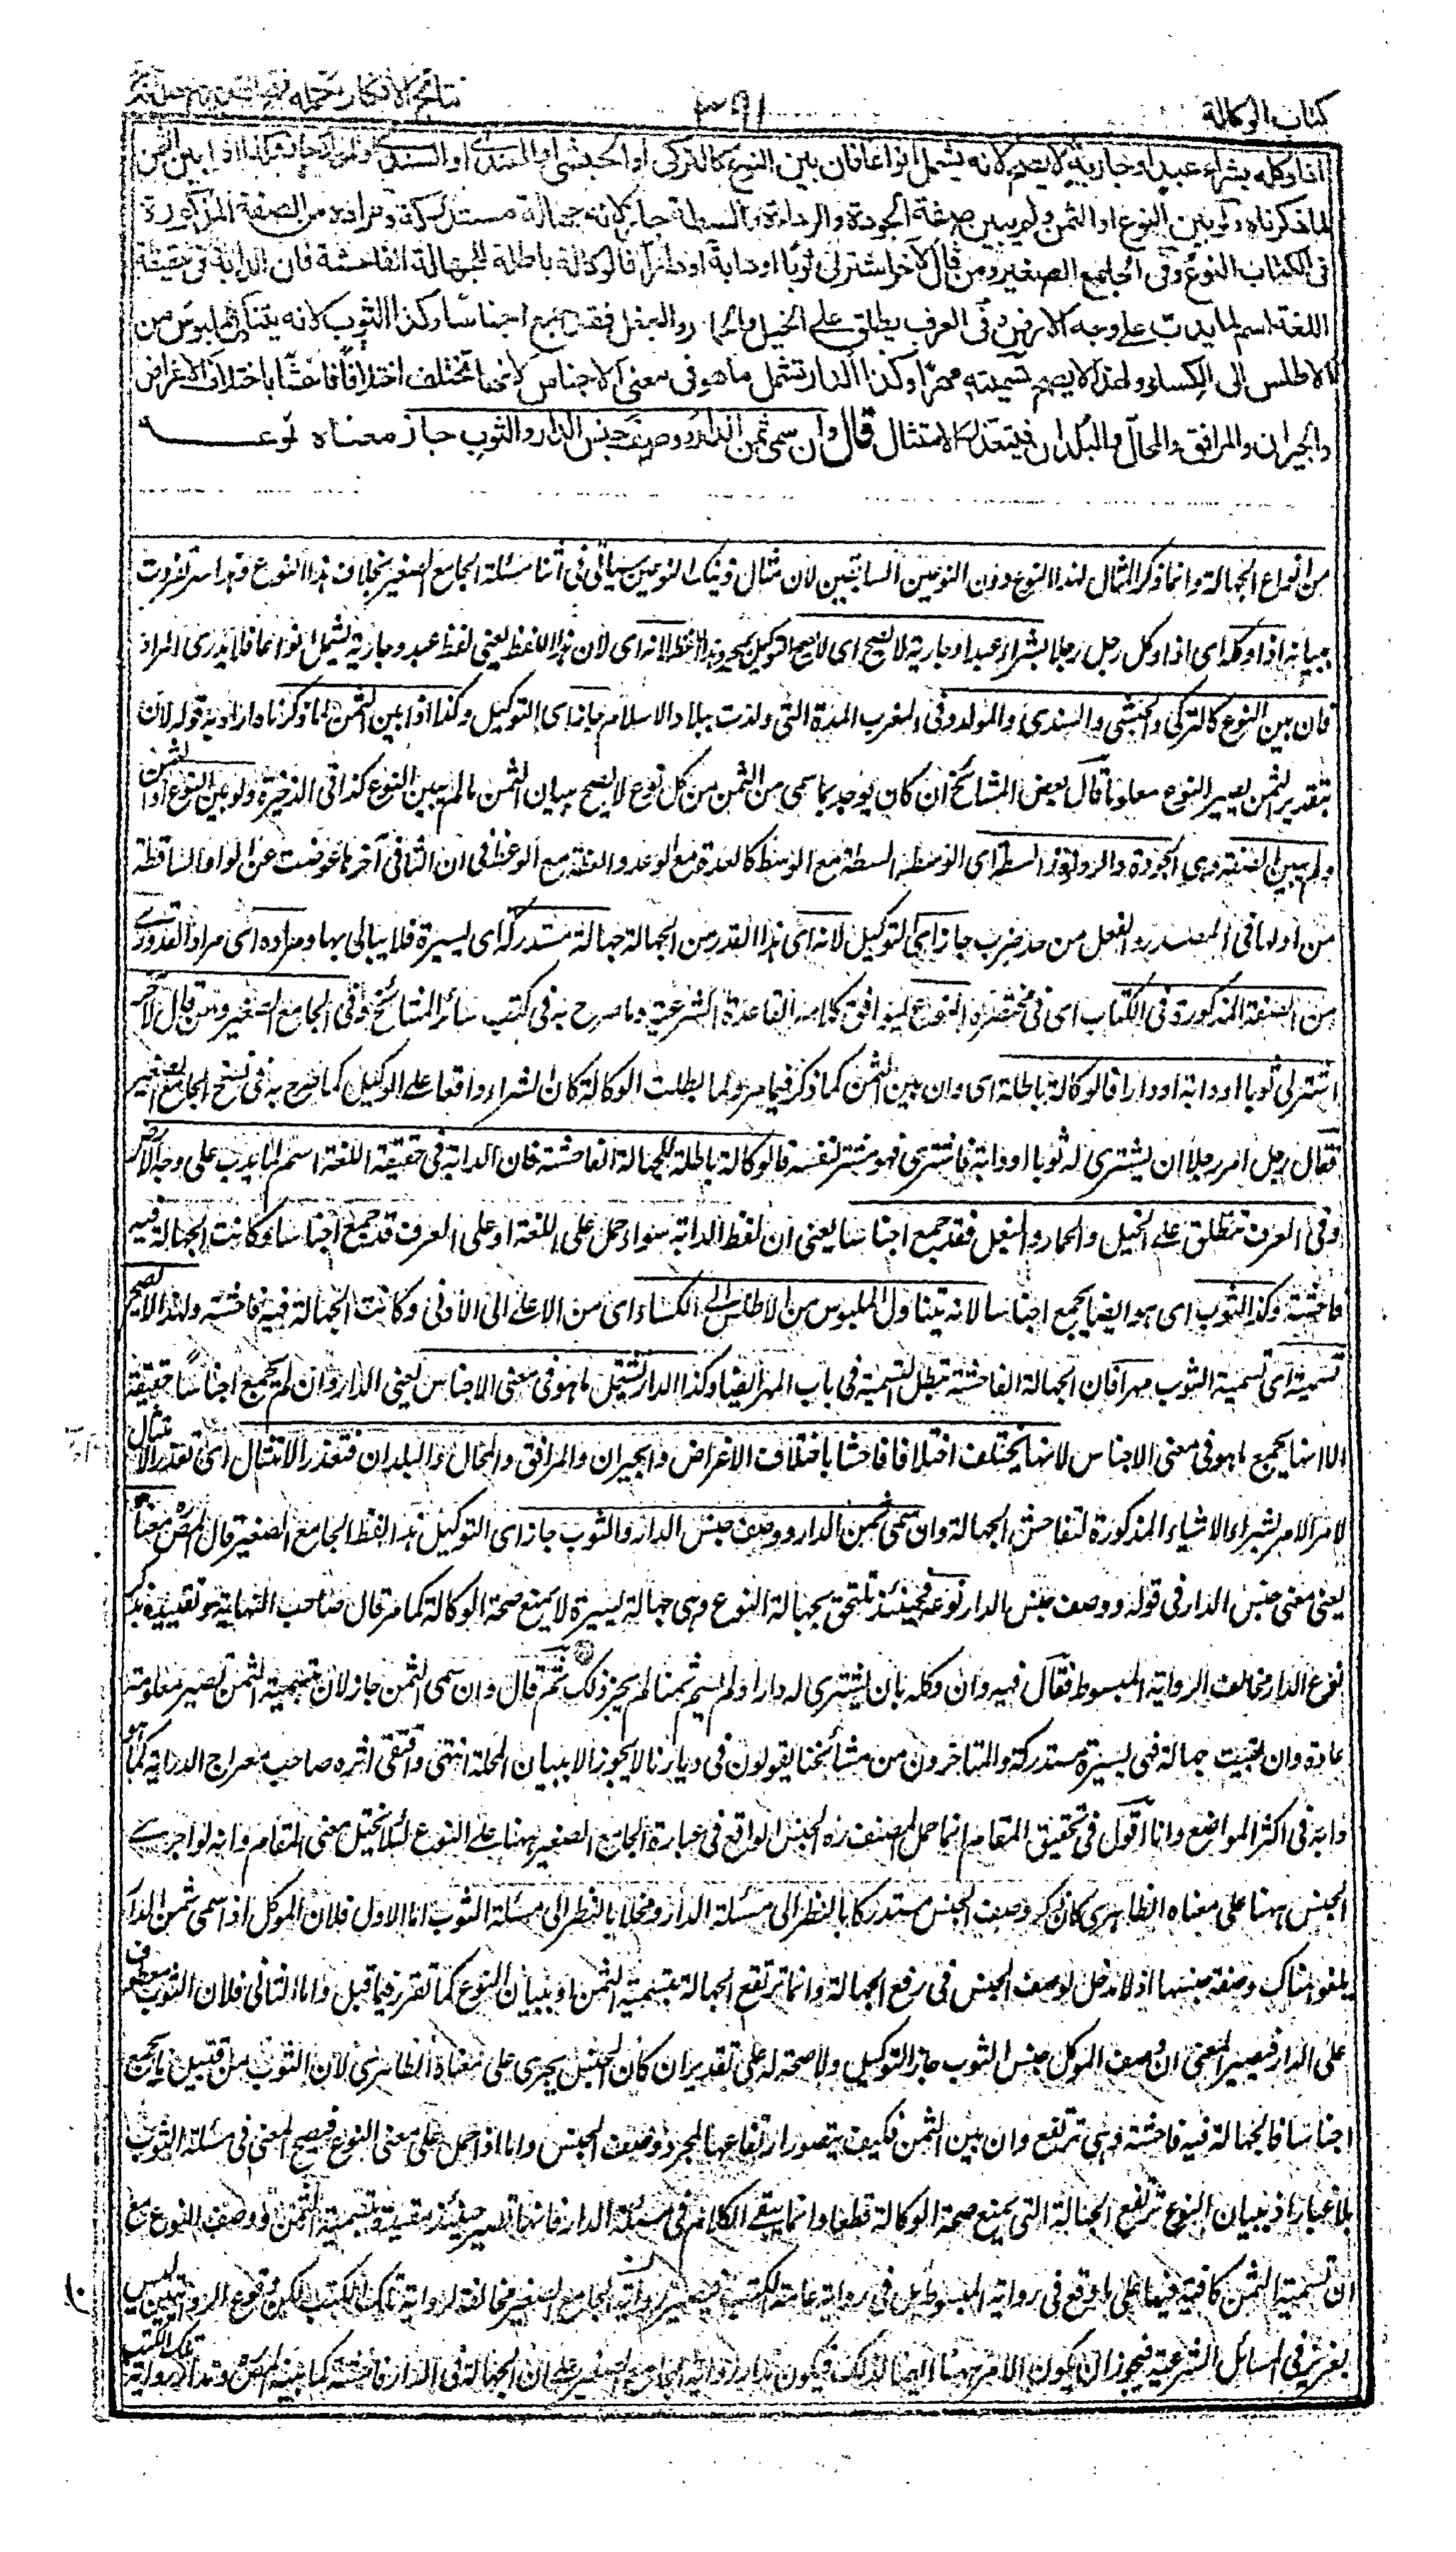 كتاب الوكالة
٣٩١
نتائج الافكار تكملة فتح القدير
اذا وكله بشراء عبد او جارية لا يصح لانه يشمل انواعا فان بين النوع كالتركي او الحبشي او الهندي او السندي او المولد جاز وكذا اذا بين الثمن
لما ذكرناه ولو بين النوع او الثمن ولم يبين صفة الجودة والرداءة والسطة جاز لانه جهالة مستدركة ومراده من الصفة المذكورة
في الكتاب النوع وفي الجامع الصغير ومن قال لآخر اشتر لي ثوبا او دابة او دارا فالوكالة باطلة للجهالة الفاحشة فان الدابة في حقيقة
اللغة اسم لما يدب على وجه الارض وفي العرف يطلق على الخيل والحمار والبغل فقد جمع اجناسا وكذا الثوب لانه يتناول الملبوس من
الاطلس الى الكساء ولهذا لا يصح تسميته مهرا وكذا الدار تشمل ما هو في معنى الاجناس لانها تختلف اختلافا فاحشا باختلاف الاغراض
والجيران والمرافق والمحال والبلدان فيتعذر الامتثال قال وان سمى ثمن الدار ووصف جنس الدار والثوب جاز معناه نوعه
من انواع الجهالة وانما ذكر المثال لهذا النوع دون النوعين السابقين لان مثال ذينك النوعين سيأتي في اثنا مسئلة الجامع الصغير بخلاف هذا النوع وهذا سر تفردت
ببيانه اذا وكله اى اذا وكل رجل رجلا بشراء عبد او جارية لا يصح اى لا يصح التوكيل بمجرد هذا اللفظ لانه اى لان هذا اللفظ يعني لفظ عبد وجارية يشمل انواعا فلا يدرى المراد
فان بين النوع كالتركي والحبشي والسندي والمولد وفي المغرب المولدة التي ولدت ببلاد الاسلام جاز اى التوكيل وكذا اذا بين الثمن لما ذكرناه اراد به قوله لان
بتقدير الثمن يصير النوع معلوما قال بعض المشائخ ان كان يوجد بما سمى من الثمن من كل نوع لا يصح ببيان الثمن ما لم يبين النوع كذا في الذخيرة ولو بين النوع او الثمن
ولم يبين الصفة وهي الجودة والرداءة والسطة اى الوسطة السطة مع الوسط كالعدة مع الوعد والعظة مع الوعظ في ان التا في آخرها عوضت عن الواو الساقطة
من اولها في المصدر والفعل من حد ضرب جاز اى التوكيل لانه اى هذا القدر من الجهالة جهالة مستدركة اى يسيرة فلا يبالى بها ومراده اى مراد القدوري
من الصفة المذكورة في الكتاب اى في مختصره النوع ليوافق كلامه القاعدة الشرعية وما صرح به في كتب سائر المشائخ وفي الجامع الصغير ومن قال لآخر
اشتر لي ثوبا او دابة او دارا فالوكالة باطلة اى وان بين الثمن كما ذكر فيما مر ولما بطلت الوكالة كان الشراء واقعا على الوكيل كما صرح به في نسخ الجامع الصغير
فقال رجل امر رجلا ان يشتري له ثوبا او دابة فاشترى فهو مشتر لنفسه فالوكالة باطلة للجهالة الفاحشة فان الدابة في حقيقة اللغة اسم لما يدب على وجه الارض
وفي العرف تنطلق على الخيل والحمار والبغل فقد جمع اجناسا يعني ان لفظ الدابة سواء حمل على اللغة او على العرف قد جمع اجناسا وكانت الجهالة فيه
فاحشة وكذا الثوب اى هو ايضا يجمع اجناسا لانه يتناول الملبوس من الاطلس الى الكساء اى من الاعلى الى الادنى وكانت الجهالة فيه فاحشة ولهذا لا يصح
تسميته اى تسمية الثوب مهرا فان الجهالة الفاحشة تبطل التسمية في باب المهر ايضا وكذا الدار تشتمل ما هو في معنى الاجناس يعني الدار وان لم تجمع اجناسا حقيقة
الا انها تجمع ما هو في معنى الاجناس لانها تختلف اختلافا فاحشا باختلاف الاغراض والجيران والمرافق والمحال والبلدان فتعذر الامتثال اى تعذر الامتثال
لامر الآمر بشراء الاشياء المذكورة لتفاحش الجهالة وان سمى ثمن الدار ووصف جنس الدار والثوب جاز اى التوكيل هذا لفظ الجامع الصغير قال المص ره معناه
يعني معنى جنس الدار في قوله ووصف جنس الدار نوعه فحينئذ تلتحق بجهالة النوع وهي جهالة يسيرة لا يمنع صحة الوكالة كما مر قال صاحب النهاية هو تقييده بذكر
نوع الدار مخالف لرواية المبسوط فقال فيه وان وكله بان يشتري له دارا ولم يسم ثمنا لم يجز ذلك ثم قال وان سمى الثمن جاز لان بتسمية الثمن تصير معلومة
عادة وان بقيت جهالة فهي يسيرة مستدركة والمتاخرون من مشائخنا يقولون في ديارنا لا يجوز الا ببيان المحلة انتهى واقتفى اثره صاحب معراج الدراية كما هو
دابه في اكثر المواضع وانا اقول في تحقيق المقام انما حمل المصنف ره الجنس الواقع في عبارة الجامع الصغير ههنا على النوع لئلا يختل معنى المقام وانه لو اجرى
الجنس ههنا على معناه الظاهري كان ذكر وصف الجنس مستدركا بالنظر الى مسئلة الدار ومخلا بالنظر الى مسئلة الثوب اما الاول فلان الموكل اذا سمى ثمن الدار
يلغو هناك وصفه جنسها اذ لا مدخل لوصف الجنس في رفع الجهالة وانما ترتفع الجهالة بتسمية الثمن او ببيان النوع كما تقرر فيما قبل واما الثاني فلان الثوب معطوف
على الدار فيصير المعنى ان وصف الموكل جنس الثوب جاز التوكيل ولا صحة له على تقدير ان كان الجنس يجرى على معناه الظاهري لان الثوب من قبيل ما يجمع
اجناسا فالجهالة فيه فاحشة وهي ترتفع وان بين الثمن فكيف يتصور ارتفاعها بمجرد وصف الجنس واما اذا حمل على معنى النوع فيصح المعنى في مسئلة الثوب
بلا غبار اذ ببيان النوع ترتفع الجهالة التي يمنع صحة الوكالة قطعا وانما يبقى الكلام في مسئلة الدار فانها تصير حينئذ مقيدة بتسمية الثمن ووصف النوع مع
ان تسمية الثمن كافية فيها على ما وقع في رواية المبسوط بل في رواية عامة الكتب فتصير رواية الجامع الصغير مخالفة لرواية تلك الكتب لكن وقوع الروايتين ليس
بعزيز في المسائل الشرعية فيجوز ان يكون الامر ههنا ايضا كذلك فيكون مدار رواية الجامع الصغير على ان الجهالة في الدار فاحشة كما بينه المص ومدار رواية تلك الكتب